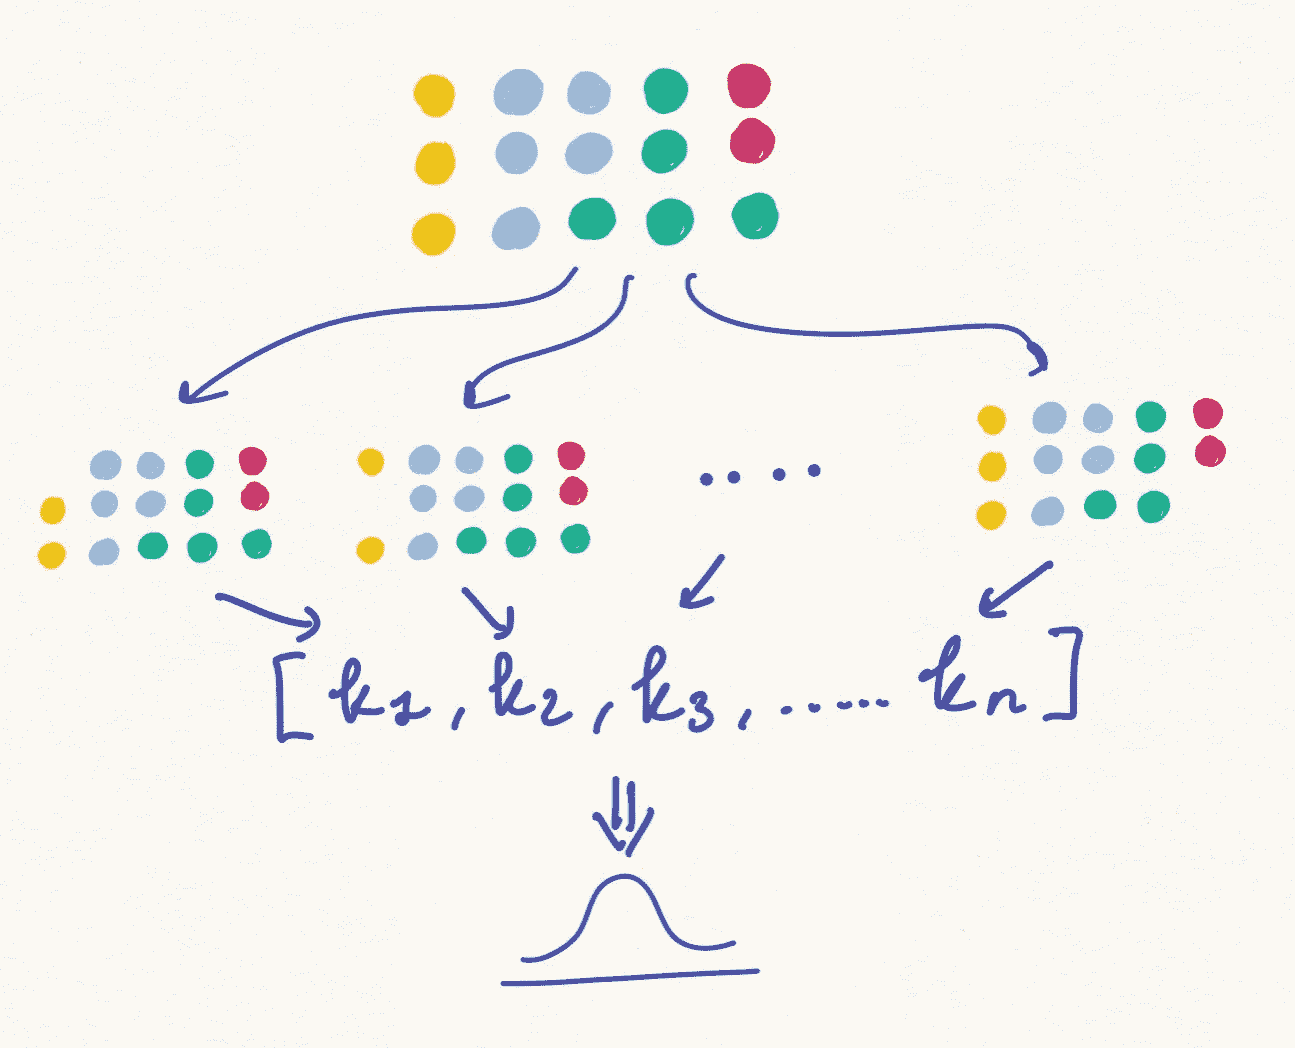 [ k1 , k2 , k3 , ....... kn ]